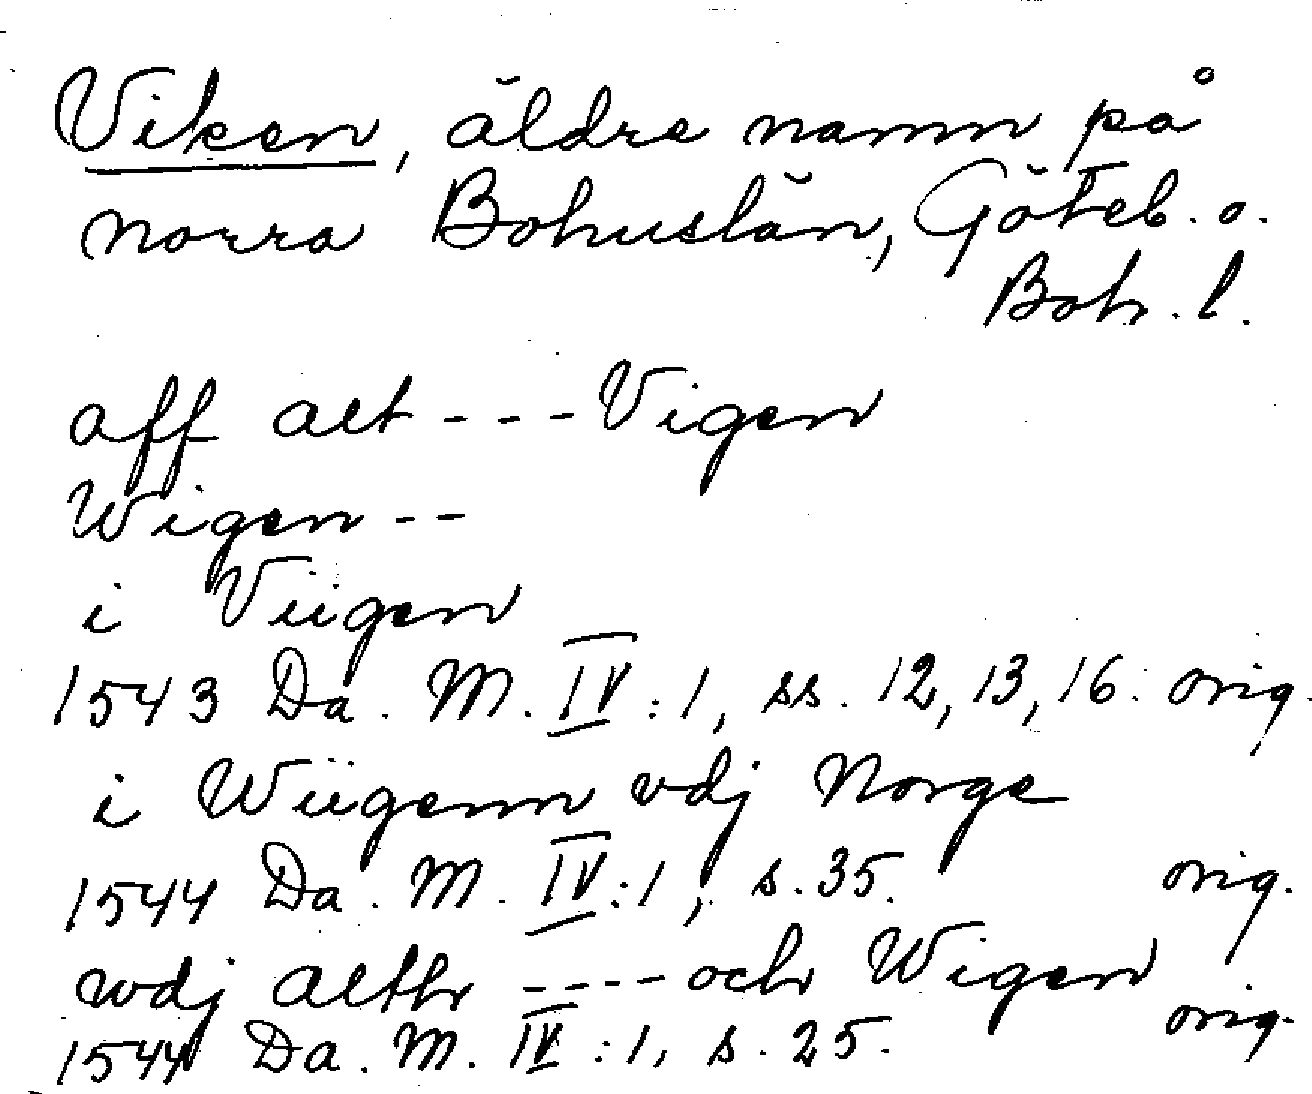 Viken, äldre namn på
norra Bohuslän, Göteb. o.
Boh. l.
aff alt - - - Vigen
Wigen - -
i Viigen
1543 Da. M. IV:1, ss. 12, 13, 16. orig.
i Wiigenn vdj Norge
1544 Da. M. IV:1, s. 35. orig.
wdj altth - - - - och Wigen
1544 Da. M. IV:1, s. 25. orig.